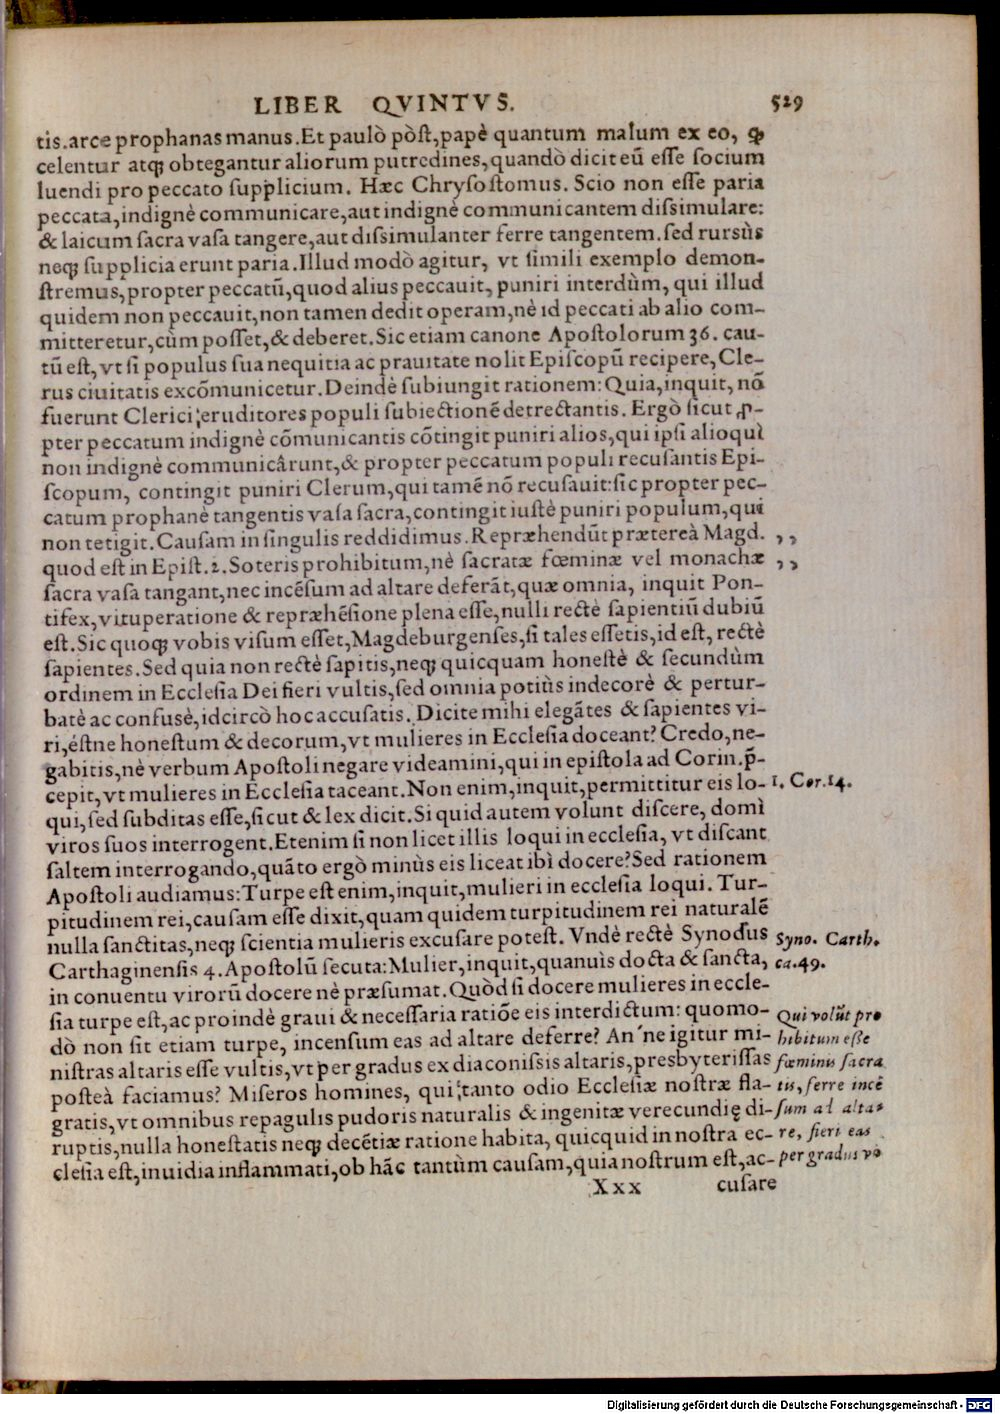 LIBER QVINTVS. 529
tis. arce prophanas manus. Et paulò pòst, papè quantum malum ex eo, ꝙ
celentur atqꝫ obtegantur aliorum putredines, quandò dicit eũ esse socium
luendi pro peccato supplicium. Hæc Chrysostomus. Scio non esse paria
peccata, indignè communicare, aut indignè communicantem dissimulare:
& laicum sacra vasa tangere, aut dissimulanter ferre tangentem. sed rursùs
neqꝫ supplicia erunt paria. Illud modò agitur, vt simili exemplo demon-
stremus, propter peccatũ, quod alius peccauit, puniri interdùm, qui illud
quidem non peccauit, non tamen dedit operam, nè id peccati ab alio com-
mitteretur, cùm posset, & deberet. Sic etiam canone Apostolorum 36. cau-
tũ est, vt si populus sua nequitia ac prauitate nolit Episcopũ recipere, Cle-
rus ciuitatis excõmunicetur. Deindè subiungit rationem: Quia, inquit, nõ
fuerunt Clerici eruditores populi subiectionẽ detrectantis. Ergò sicut ꝓ-
pter peccatum indignè cõmunicantis cõtingit puniri alios, qui ipsi alioquì
non indignè communicârunt, & propter peccatum populi recusantis Epi-
scopum, contingit puniri Clerum, qui tamẽ nõ recusauit: sic propter pec-
catum prophanè tangentis vasa sacra, contingit iustè puniri populum, qui
non tetigit. Causam in singulis reddidimus. Repræhendũt prætereà Magd. ,,
quod est in Epist. 2. Soteris prohibitum, nè sacratæ fœminæ vel monachæ ,,
sacra vasa tangant, nec incẽsum ad altare deferãt, quæ omnia, inquit Pon-
tifex, vituperatione & repræhẽsione plena esse, nulli rectè sapientiũ dubiũ
est. Sic quoqꝫ vobis visum esset, Magdeburgenses, si tales essetis, id est, rectè
sapientes. Sed quia non rectè sapitis, neqꝫ quicquam honestè & secundùm
ordinem in Ecclesia Dei fieri vultis, sed omnia potiùs indecorè & pertur-
batè ac confusè, idcircò hoc accusatis. Dicite mihi elegãtes & sapientes vi-
ri, éstne honestum & decorum, vt mulieres in Ecclesia doceant? Credo, ne-
gabitis, nè verbum Apostoli negare videamini, qui in epistola ad Corin. p̃-
cepit, vt mulieres in Ecclesia taceant. Non enim, inquit, permittitur eis lo- 1. Cor. 14.
qui, sed subditas esse, sicut & lex dicit. Si quid autem volunt discere, domì
viros suos interrogent. Etenim si non licet illis loqui in ecclesia, vt discant
saltem interrogando, quãto ergò minùs eis liceat ibì docere? Sed rationem
Apostoli audiamus: Turpe est enim, inquit, mulieri in ecclesia loqui. Tur-
pitudinem rei, causam esse dixit, quam quidem turpitudinem rei naturalẽ
nulla sanctitas, neqꝫ scientia mulieris excusare potest. Vndè rectè Synodus Syno. Carth.
Carthaginensis 4. Apostolũ secuta: Mulier, inquit, quanuis docta & sancta, ca. 49.
in conuentu virorũ docere nè præsumat. Quòd si docere mulieres in eccle-
sia turpe est, ac proindè graui & necessaria ratiõe eis interdictum: quomo- Qui volũt pro
dò non sit etiam turpe, incensum eas ad altare deferre? An´ne igitur mi- hibitum esse
nistras altaris esse vultis, vt per gradus ex diaconissis altaris, presbyterissas fœminis sacra
posteà faciamus? Miseros homines, qui tanto odio Ecclesiæ nostræ fla- tis, ferre incẽ
gratis, vt omnibus repagulis pudoris naturalis & ingenitæ verecundię di- sum ad alta-
ruptis, nulla honestatis neqꝫ decẽtiæ ratione habita, quicquid in nostra ec- re, fieri eas
clesia est, inuidia inflammati, ob hãc tantùm causam, quia nostrum est, ac- per gradus vo
Xxx cusare
Digitalisierung gefördert durch die Deutsche Forschungsgemeinschaft - DFG